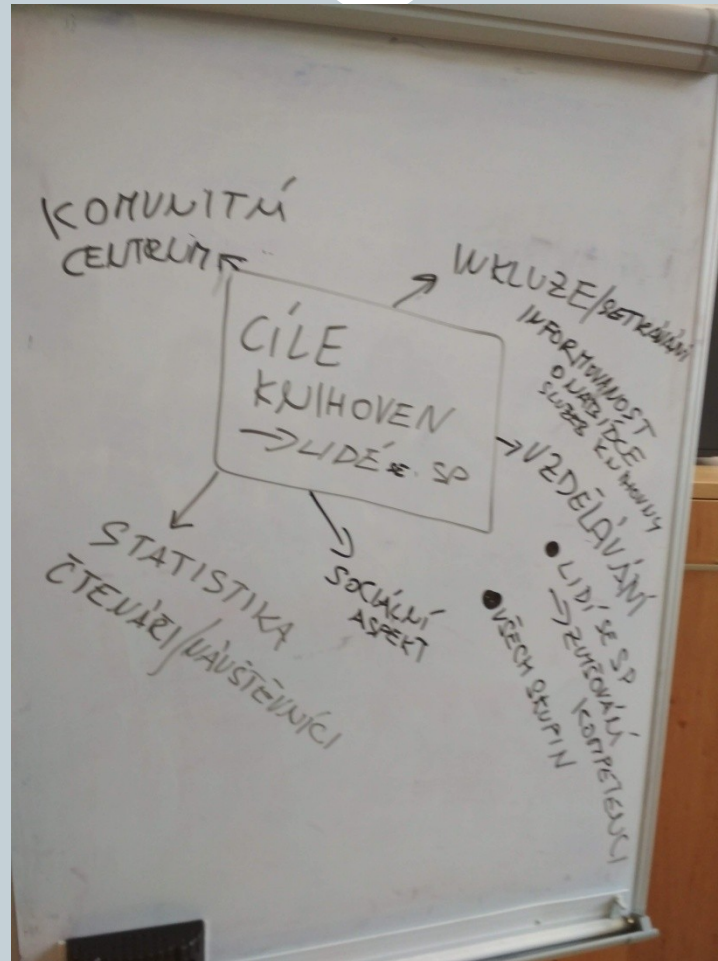 KOMUNITNÍ
CENTRUM
CÍLE
KNIHOVEN
→ LIDÉ SE SP
INKLUZE/SETKÁVÁNÍ
INFORMOVANOST
O NABÍDCE
SLUŽEB KNIHOVNY
VZDĚLÁVÁNÍ
• LIDÍ SE SP
→ ZVYŠOVÁNÍ
KOMPETENCÍ
• VŠECH SKUPIN
SOCIÁLNÍ
ASPEKT
STATISTIKA
ČTENÁŘI/NÁVŠTĚVNÍCI